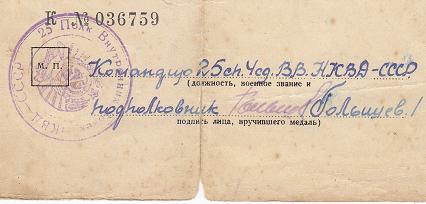 К № 036759
25 Полк Внутренних
СССР
М. П.
Командир 25 сп. 4 сд. В.В. НКВД-СССР
(должность, военное звание и
подполковник /Больщев./
подпись лица, вручившего медаль)